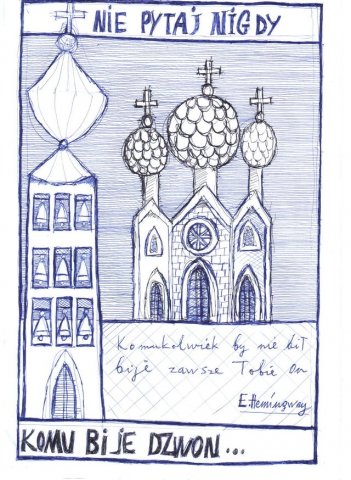 NIE PYTAJ NIGDY
Komukolwiek by nie bił
bije zawsze Tobie On
E. Hemingway
KOMU BIJE DZWON...